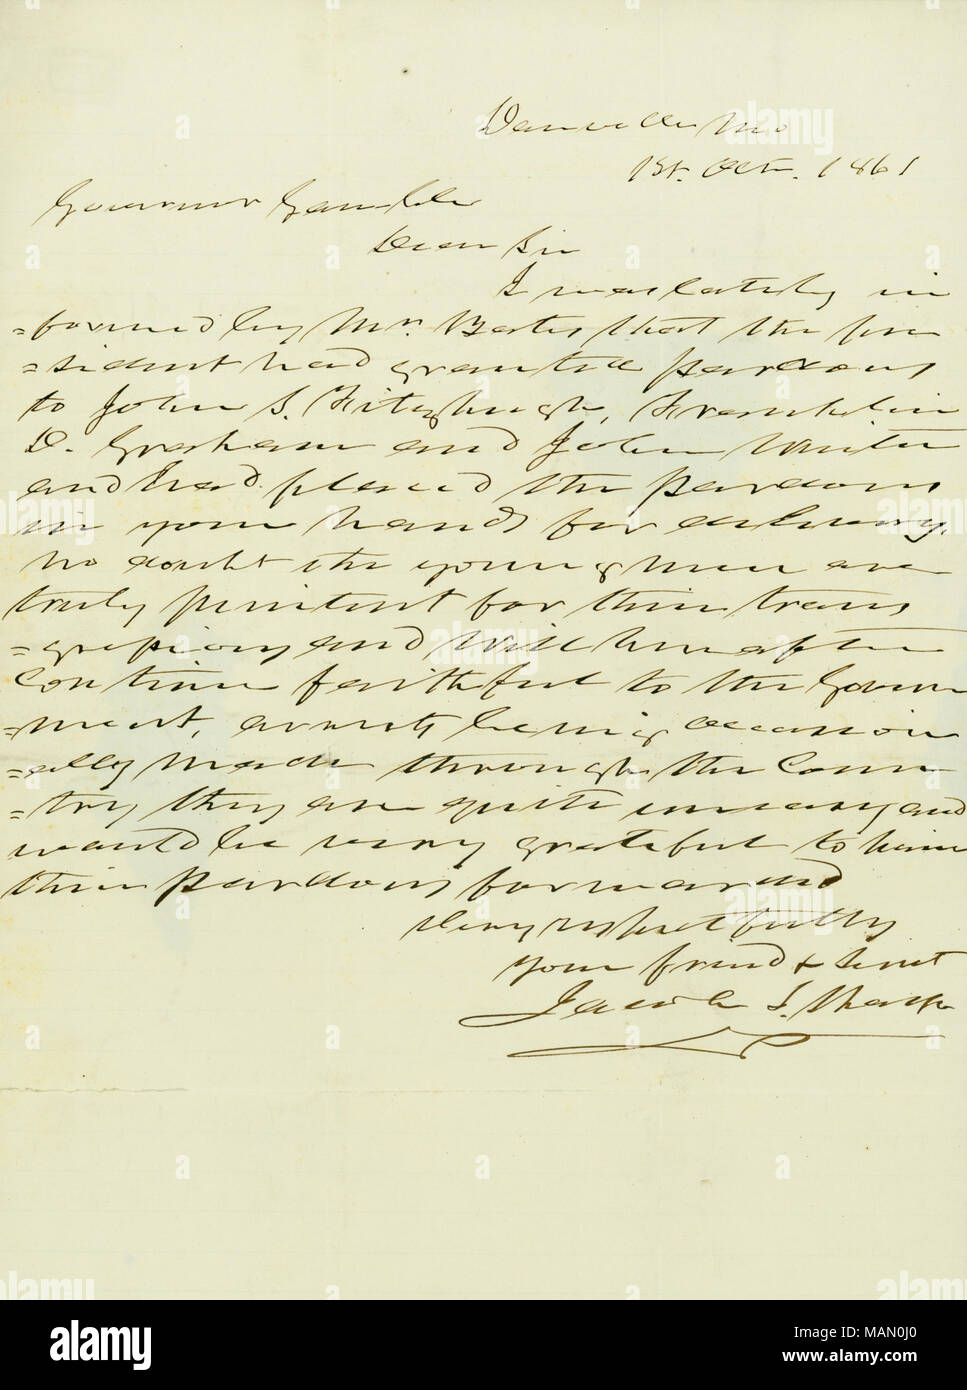 Danville Mo
1st. Oct. 1861
Governor Gamble
Dear Sir
I was lately in
=formed by Mr. Bates that the pre
=sident had granted pardons
to John S. Fitzhugh, Franklin
D. Graham and John White
and had placed the pardons
in your hands for delivery.
no doubt the young men are
truly penitent for their trans
=gressions and will hereafter
continue faithful to the Govern
=ment, arrests being occasion
=ally made through the Coun
=try they are quite uneasy and
would be very grateful to have
their pardons forwarded
Very respectfully
your friend & Servt
Jacob S. Sharp
alamy
a
alamy
Image ID: MAN0J0
www.alamy.com